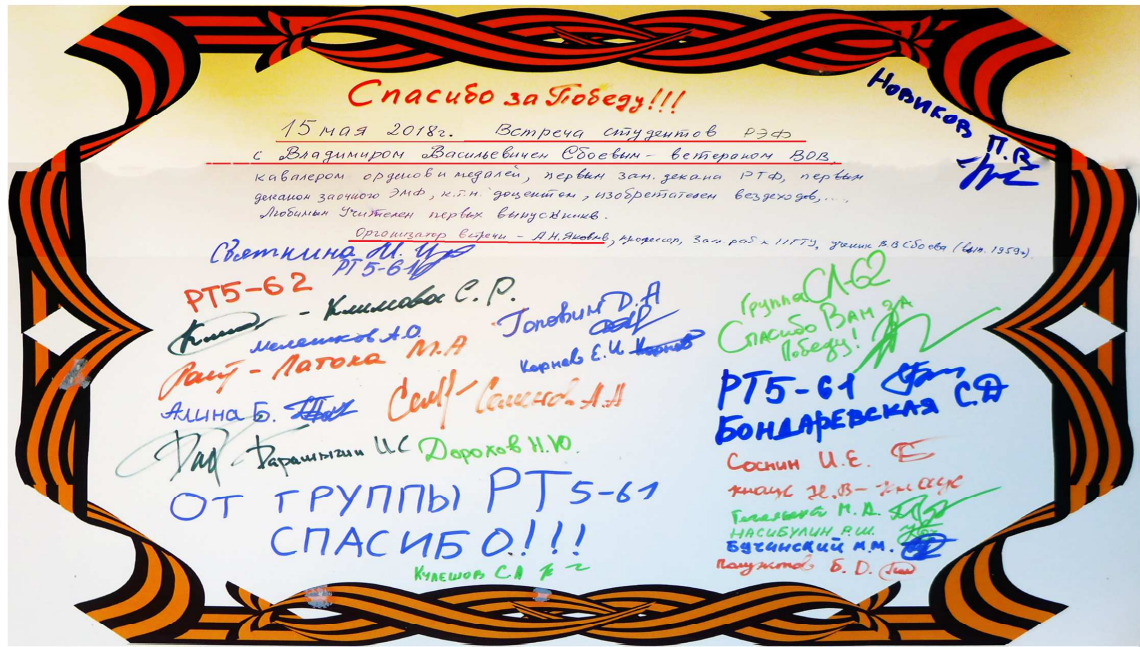 Спасибо за Победу!!!
15 мая 2018г. Встреча студентов РЭФ
с Владимиром Васильевичем Сбоевым - ветераном ВОВ,
кавалером орденов и медалей, первым зам. декана РТФ, первым
деканом заочного ЭМФ, к.т.н. доцентом, изобретателем вездеходов,...,
Любимым Учителем первых выпускников.
Организатор встречи - А.Н.Яковлев, профессор, зав. НГТУ, ученик В.В Сбоева (вып. 1959г.)
Новиков П.В
Святкина М.
РТ5-61
РТ5-62
Климова С.Р.
Мелешков А.О.
Латоха М.А
Алина Б.
Головин Д.А
Корнев Е.И
Семенов А.А
И.С
Дорохов Н.Ю.
ОТ ГРУППЫ РТ5-61
СПАСИБО!!!
КУЛЕШОВ С.А
Группа СЛ-62
Спасибо Вам за
Победу!
РТ5-61
БОНДАРЕВСКАЯ С.Д
Соснин И.Е.
Кнаус Н.В-
М.А.
НАСИБУЛИН Р.Ш.
БУЧИНСКИЙ М.М.
Б.О.